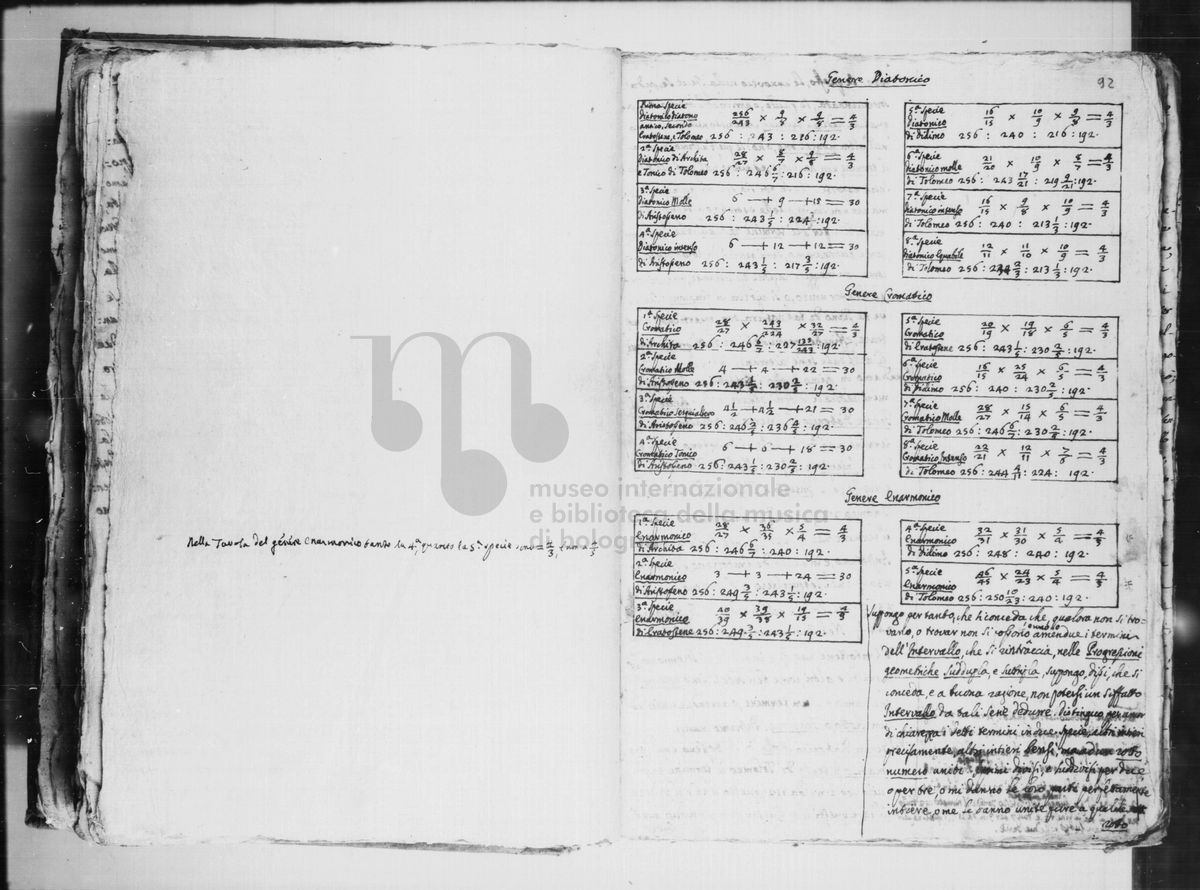 Nella Tavola del genere Enarmonico tanto la 4.ª quanto la 5.ª specie sono = 4/3, e non a 4/5
92
Genere Diatonico
Prima Specie
Diatonico Diatono
secondo
Eratostene, e Tolomeo
256/243 × 9/8 × 9/8 = 4/3
256 : 243 : 216 : 192
2.ª Specie
Diatonico di Archita
e Tonico di Tolomeo
28/27 × 8/7 × 9/8 = 4/3
256 : 246 6/7 : 216 : 192
3.ª Specie
Diatonico Molle
di Aristosseno
6 + 9 + 15 = 30
256 : 243 1/5 : 224 : 192
4.ª Specie
Diatonico intenso
di Aristosseno
6 + 12 + 12 = 30
256 : 243 1/5 : 217 3/5 : 192
5.ª Specie
Diatonico
di Didimo
16/15 × 10/9 × 9/8 = 4/3
256 : 240 : 216 : 192
6.ª Specie
Diatonico molle
di Tolomeo
21/20 × 10/9 × 8/7 = 4/3
256 : 243 17/21 : 219 9/21 : 192
7.ª Specie
Diatonico intenso
di Tolomeo
16/15 × 9/8 × 10/9 = 4/3
256 : 240 : 213 1/3 : 192
8.ª Specie
Diatonico Equabile
di Tolomeo
12/11 × 11/10 × 10/9 = 4/3
256 : 234 2/3 : 213 1/3 : 192
Genere Cromatico
1.ª Specie
Cromatico
di Archita
28/27 × 243/224 × 32/27 = 4/3
256 : 246 6/7 : 227 133/243 : 192
2.ª Specie
Cromatico Molle
di Aristosseno
4 + 4 + 22 = 30
3.ª Specie
Cromatico sesquialtero
di Aristosseno
4 1/2 + 4 1/2 + 21 = 30
256 : 246 2/5 : 236 4/5 : 192
4.ª Specie
Cromatico Tonico
di Aristosseno
6 + 6 + 18 = 30
256 : 243 1/5 : 230 2/5 : 192
5.ª Specie
Cromatico
di Eratostene
20/19 × 19/18 × 6/5 = 4/3
256 : 243 1/5 : 230 2/5 : 192
6.ª Specie
Cromatico
di Didimo
16/15 × 25/24 × 6/5 = 4/3
256 : 240 : 230 2/5 : 192
7.ª Specie
Cromatico Molle
di Tolomeo
28/27 × 15/14 × 6/5 = 4/3
256 : 246 6/7 : 230 2/5 : 192
8.ª Specie
Cromatico Intenso
di Tolomeo
22/21 × 12/11 × 7/6 = 4/3
256 : 244 4/11 : 224 : 192
Genere Enarmonico
1.ª Specie
Enarmonico
di Archita
28/27 × 36/35 × 5/4 = 4/3
256 : 246 6/7 : 240 : 192
2.ª Specie
Enarmonico
di Aristosseno
3 + 3 + 24 = 30
256 : 249 3/5 : 243 1/5 : 192
3.ª Specie
Enarmonico
di Eratostene
40/39 × 39/38 × 19/15 = 4/3
256 : 249 3/5 : 243 1/5 : 192
4.ª Specie
Enarmonico
di Didimo
32/31 × 31/30 × 5/4 = 4/3
256 : 248 : 240 : 192
5.ª Specie
Enarmonico
di Tolomeo
46/45 × 24/23 × 5/4 = 4/3
256 : 250 10/23 : 240 : 192
Suppongo pertanto, che si conceda che, qualora non si tro-
vano, o trovar non si possono amendue i termini
dell'Intervallo, che si rintraccia, nelle Progressioni
geometriche Suddupla, e subtripla, suppongo, dissi, che si
conceda, e a buona ragione, non potersi un siffatto
Intervallo da tali serie dedurre. Distinguo per amor
di chiarezza i detti termini in due specie, altri interi
precisamente, altri interi bensì, ma ad un rotto
numero uniti. termini divisi, e suddivisi per due
o per tre, o mi danno le loro parti perfettamente
intiere, o me le danno unite pure a qualche
rotto
museo internazionale
e biblioteca della musica
di bologna